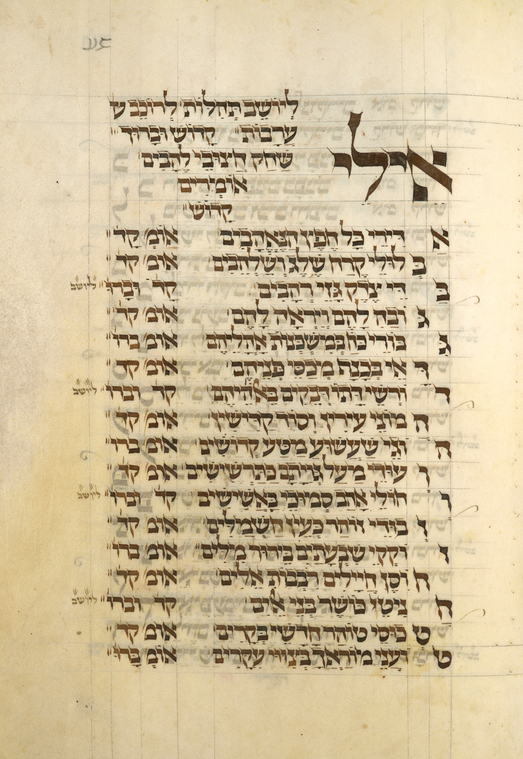 ליושב תהלות לרוכב ע
ערבות קדוש וברוך
אילי שחק חצובי להבים
אומרים
קדוש
א דירי כל חפץ הנאהבים אומ קד
ב לולי קרח שלג ושלהבים אומ קד
ב די קד וברו ליושב
ג ובה להם ויראה להם אומ קד
ג במשכנות אהליהם אומ ברו
ד אי בבצה מכסי פניהם אומ קד
ד ורשי דתו דבקים באלהיהם קד וברו ליושב
ה מוני עירין וסוד קדושין אומ קד
ה גי שעשוע מטע קדושים אומ ברו
ו עודי מעל גויתם כתרשישים אומ קד
ו חולי אהב סמוכי באשישים קד וברו ליושב
ז זוהר כעין חשמלים אומ קד
ז וקקי שבעתים בירור מילים אומ ברו
ח וסן חיילים רבבות אלים אומ קד
ח ניטי כושר בני אלים קד וברו ליושב
ט כיסי טוהר חדשי בקרים אומ קד
ט ועני מוראך בציווי עקרים אומ ברו